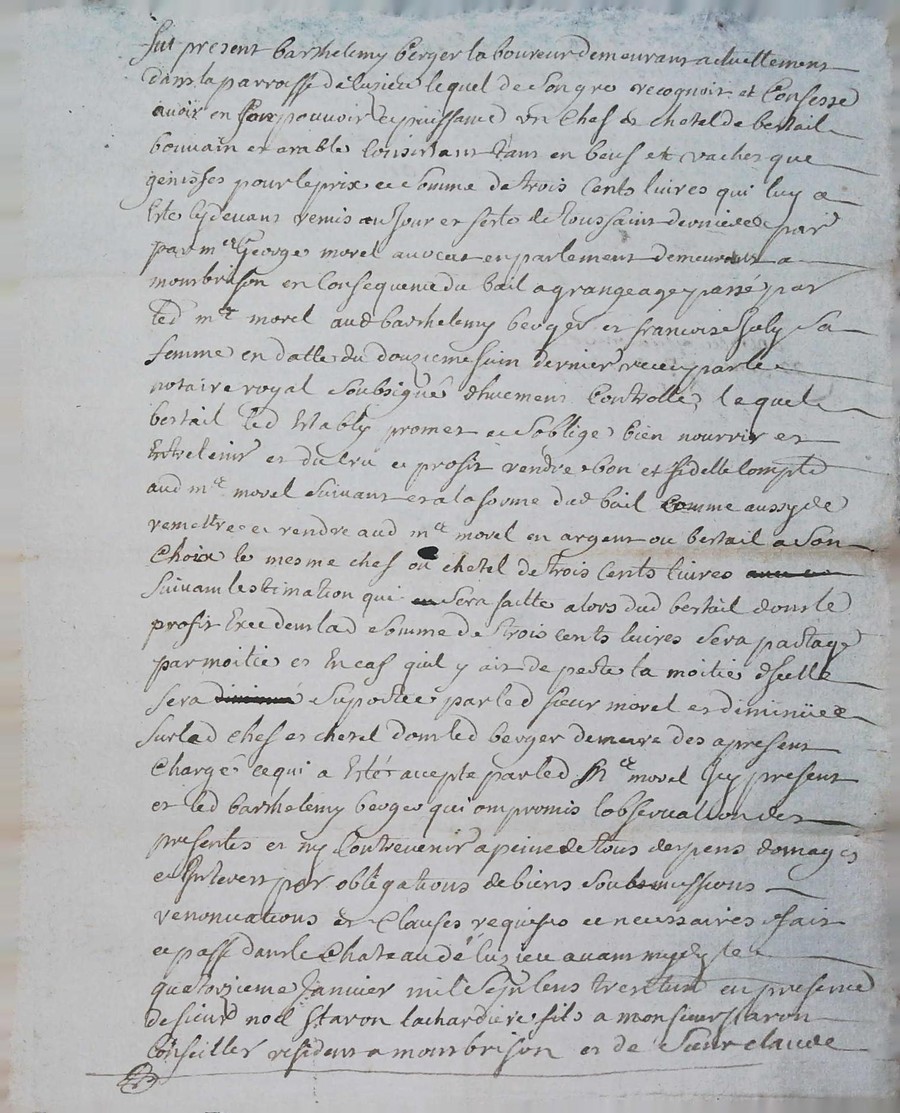 fut present barthelemy berger laboureur demeurant actuellement
dans la parroisse de luzieu lequel de son gre recognoit et Confesse
avoir en son pouvoir et puissance un chef et chetel de bestail
bouvain et arable Consistant tant en beuf et vaches que
genisses pour le prix et somme de trois cents livres qui luy a
Este cydevant remis au jour et feste de toussaint derniere par
par me George morel avocat en parlement demeurant a
montbrison en Consequence du bail a grangeage passé par
led me morel aud barthelemy berger et francoise joly sa
femme en datte du douzieme juin dernier receu par le
notaire royal soubsigné dhuement Controllé, lequel
bestail led Estably promet et soblige bien nourrir et
Entretenir et du Cru et profit rendre bon et fidelle Compte
aud me morel suivant et a la forme dud bail Comme aussy de
remettre et rendre aud me morel en argent ou bestail a son
Choix le mesme chef ou chetel de trois Cents livres
suivant lestimation qui sera faitte alors dud bestail dont le
profit Excedent lad somme de trois cents livres sera partagé
par moitie et En cas quil y ait de perte la moitie dicelle
sera suportée par led sieur morel et diminüee
sur led chef et chetel dont led berger demeure des apresent
Chargé ce qui a Esté accepte par led me morel Icy present
et led barthelemy berger qui ont promis lobservation des
presentes et ny Contrevenir a peine de tous depens domages
et Interest par obligations de biens soubmissions
renonciations et Clauses requises et necessaires fait
et passé dans le Chateau de luzieu avant midy le
quatorzieme Janvier mil sept cens trente un en presence
de sieurs noel staron lachardiere fils a monsieur staron
Conseiller resident a montbrison et de sieur claude